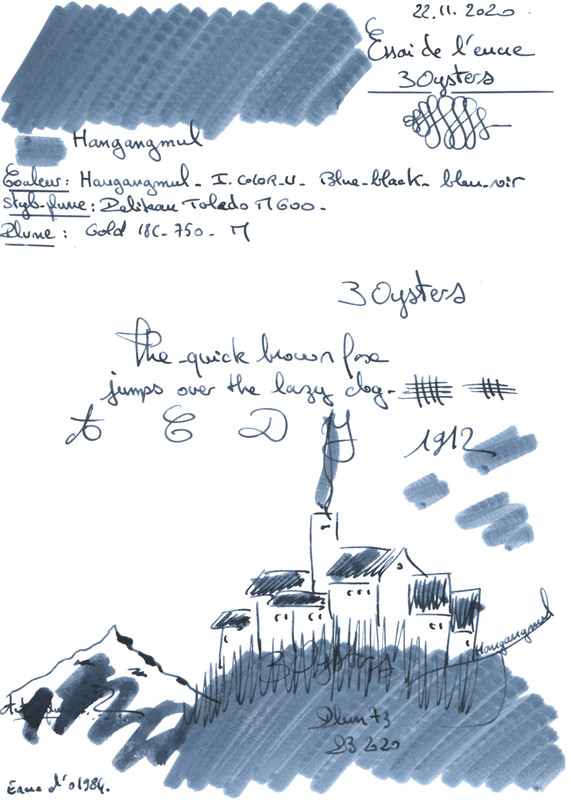 22.11.2020
Essai de l'encre
3 Oysters
Hangangmul
Couleur : Hangangmul - I.COLOR.U - Blue-black - bleu-noir
Stylo-plume : Pelikan Toledo M600 -
Plume : Gold 18C-750 - M
3 Oysters
The quick brown fox
jumps over the lazy dog -
A C D Y
1912
Hangangmul
3 Oysters